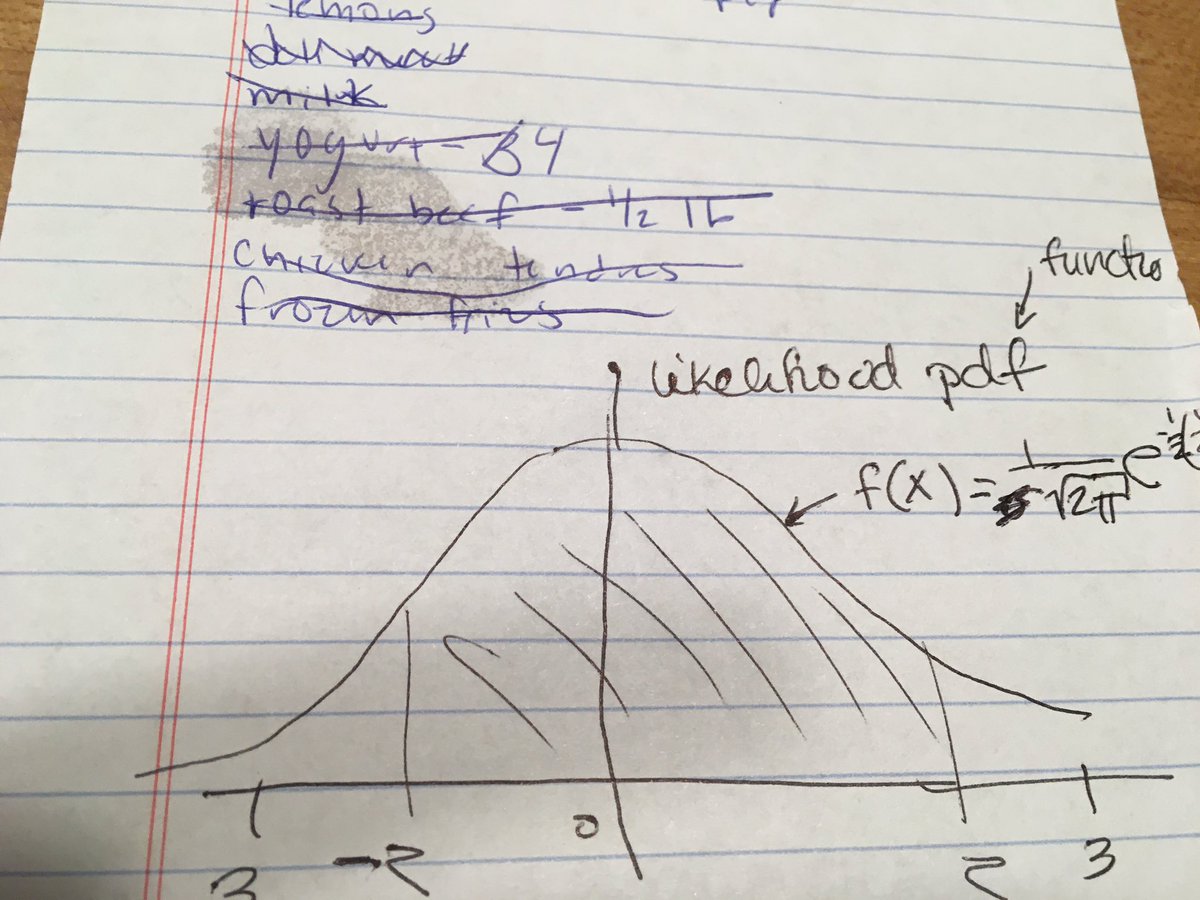 lemons
milk
yogurt - 84
roast beef - 1/2 lb
Chicken tenders
frozen fries
functio
likelihood pdf
f(x) = 1/√2π e
-2 0 2 3
3